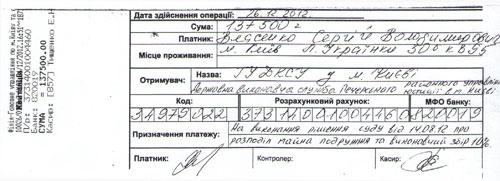 Дата здійснення операції: 26.12.2012.
Сума: 137500=
Платник: Сергій Володимирович
Місце проживання: м. Київ Л. Українки 30в кв 55
Отримувач:
Назва: ГУДКСУ у м. Києві
Державна виконавча служба Печерського районного управління юстиції в м. Києві
Код: Розрахунковий рахунок: МФО банку:
34975022 37314001000446 0 820019
Призначення платежу:
На виконання рішення суду від 14.08.12 про
розподіл майна подружжя та виконавчий збір 10%
Платник: Контролер: Касир:
Банк: 820019
СУМА = 137500.00